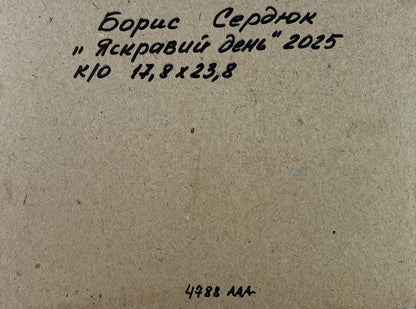 Борис Сердюк
„Яскравий день" 2025
к/о 17,8х23,8
4788 ААА